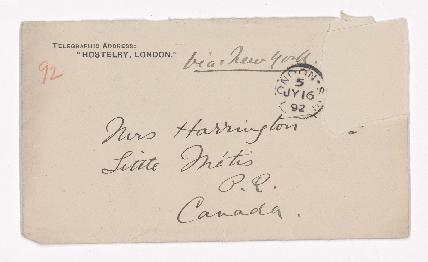 TELEGRAPHIC ADDRESS:
"HOSTELRY, LONDON."
via New York.
92
LONDON · S.W
5
JY 16
92
Mrs Harrington
Little Métis
P.Q.
Canada.